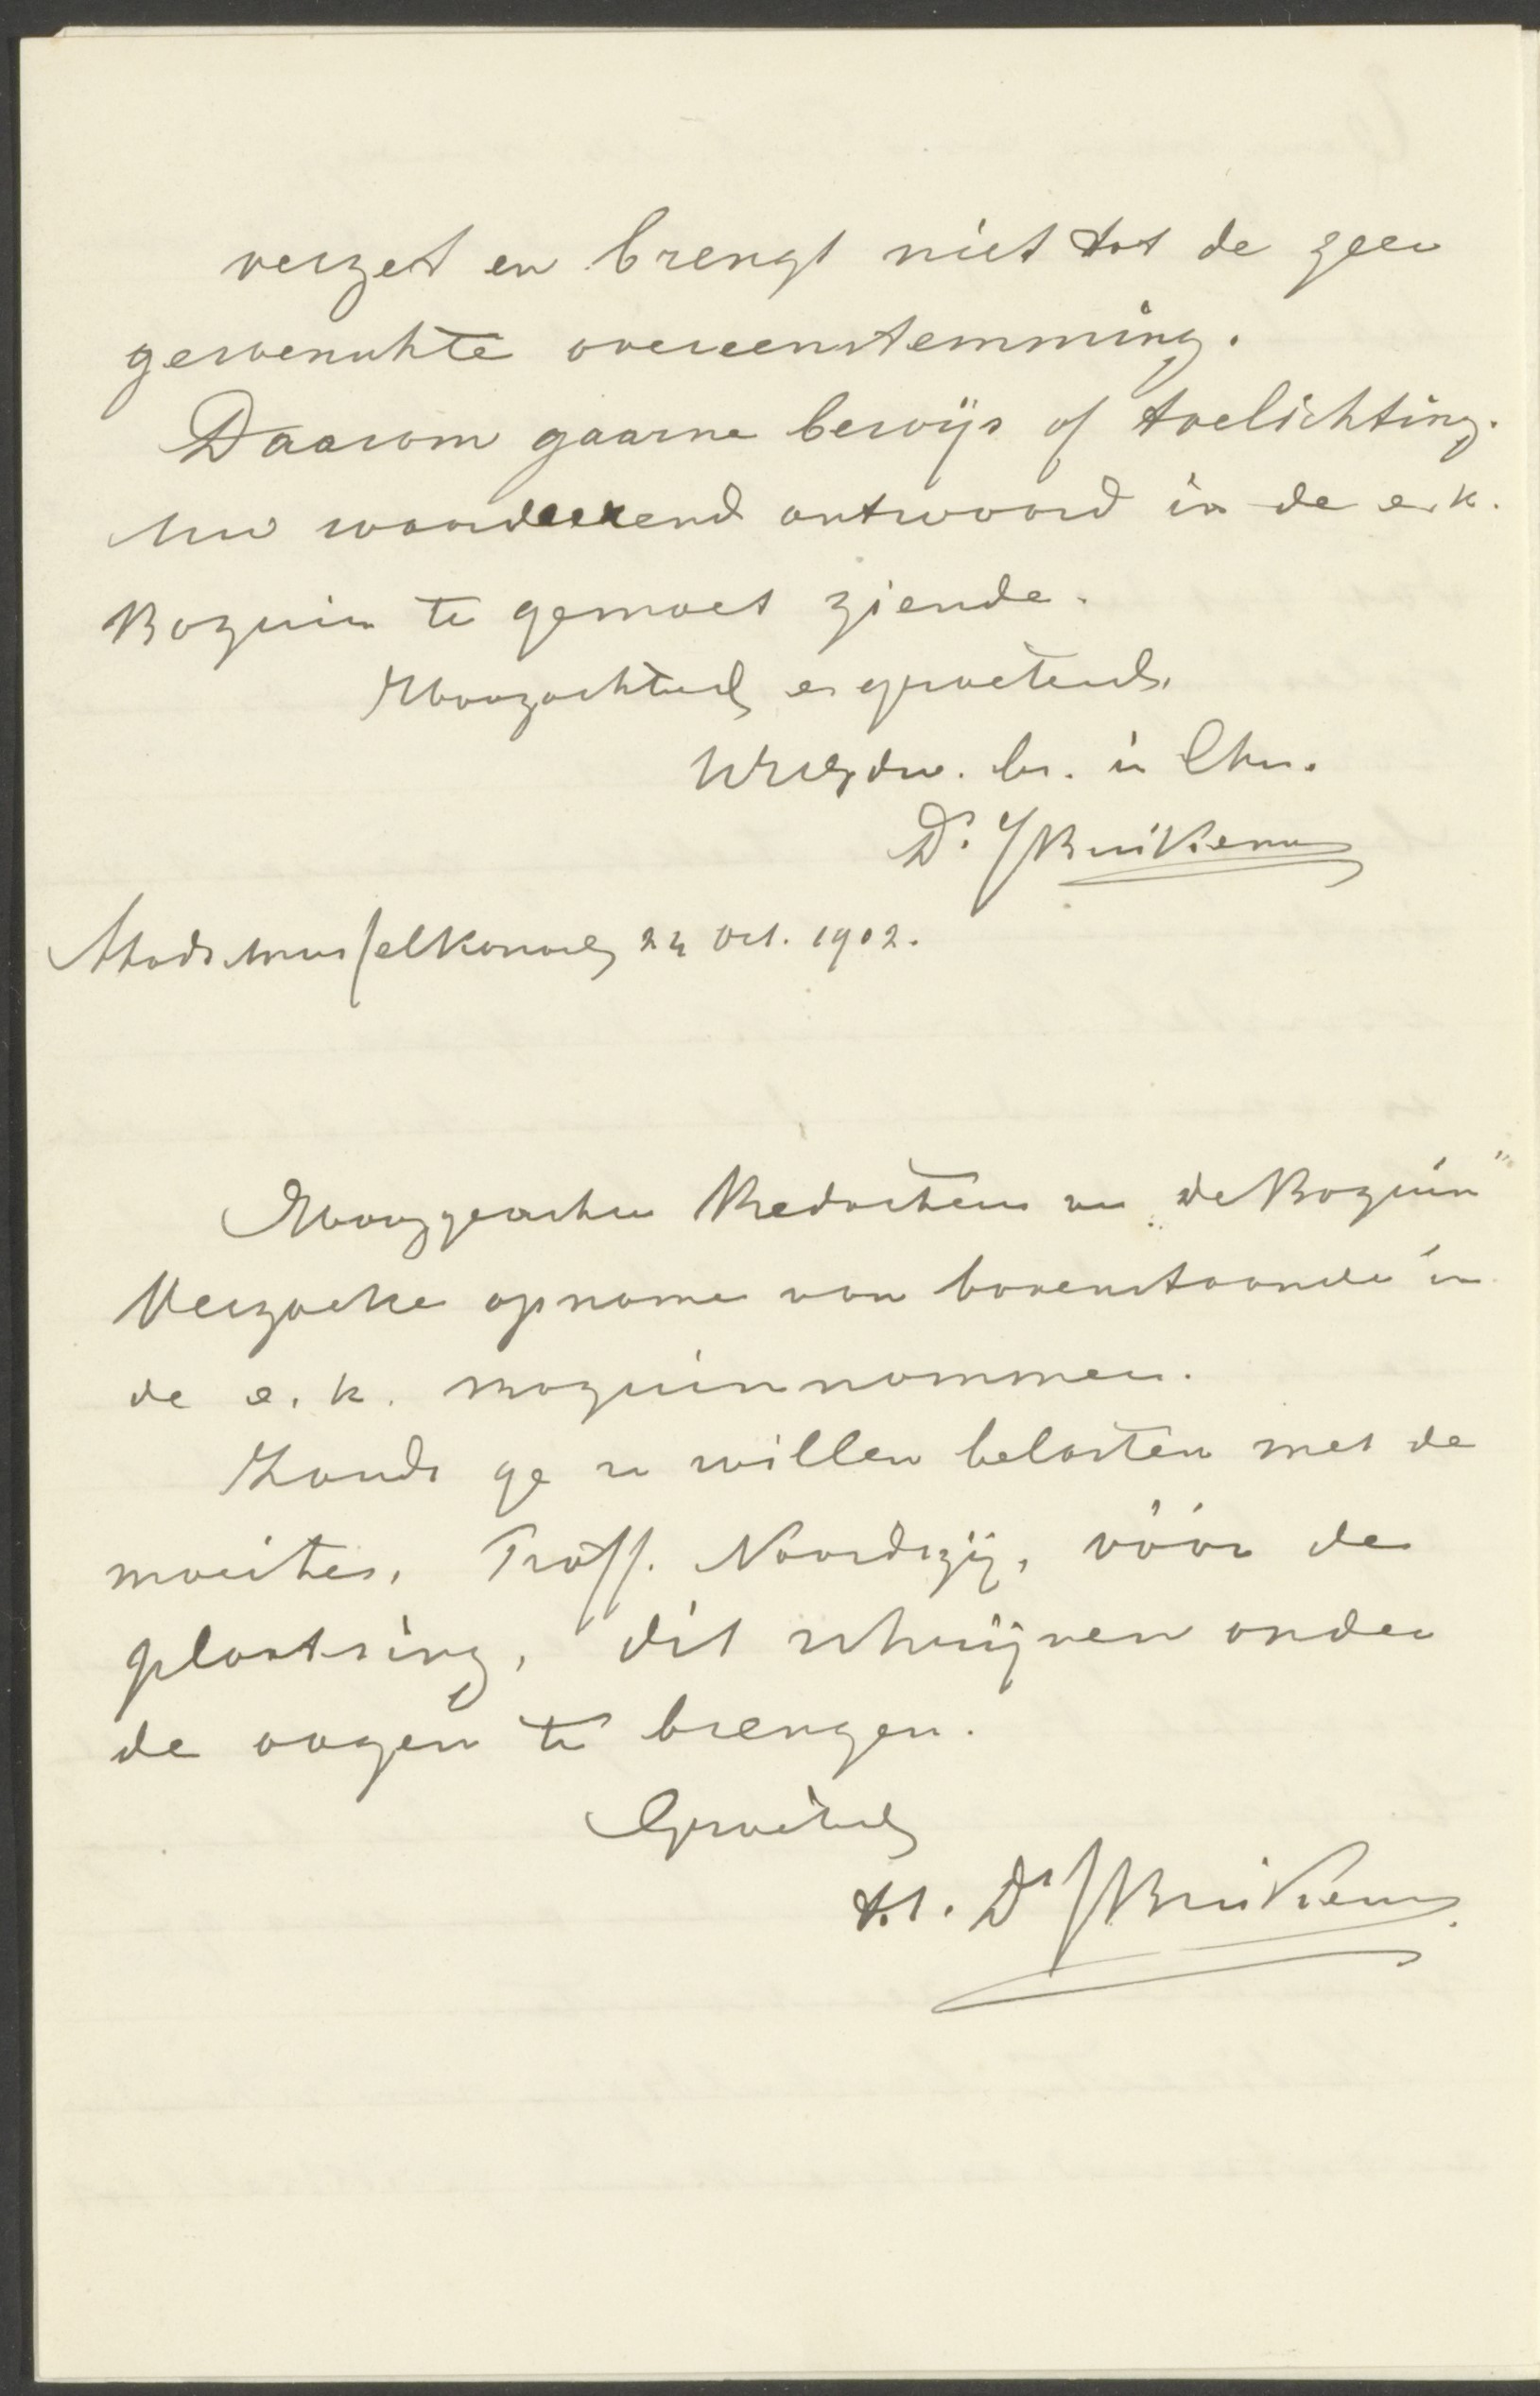 verzet en brengt niet tot de zeer
gewenschte overeenstemming.
Daarom gaarne bewijs of toelichting.
Uw waardeerend antwoord in de e.k.
Bazuin te gemoet ziende.
Hoogachtend en groetend,
Uw dw. br. in Chr.
Ds. J Kruikema
Stadsmusselkanaal, 24 Oct. 1902.
Hooggeachte Redacteur van „de Bazuin"
Verzoeke opname van bovenstaande in
de e.k. Bazuinnommer.
Zoudt ge u willen belasten met de
moeite, Proff. Noordzij, vóór de
plaatsing, dit schrijven onder
de oogen te brengen.
Groetend,
t.t. Ds J